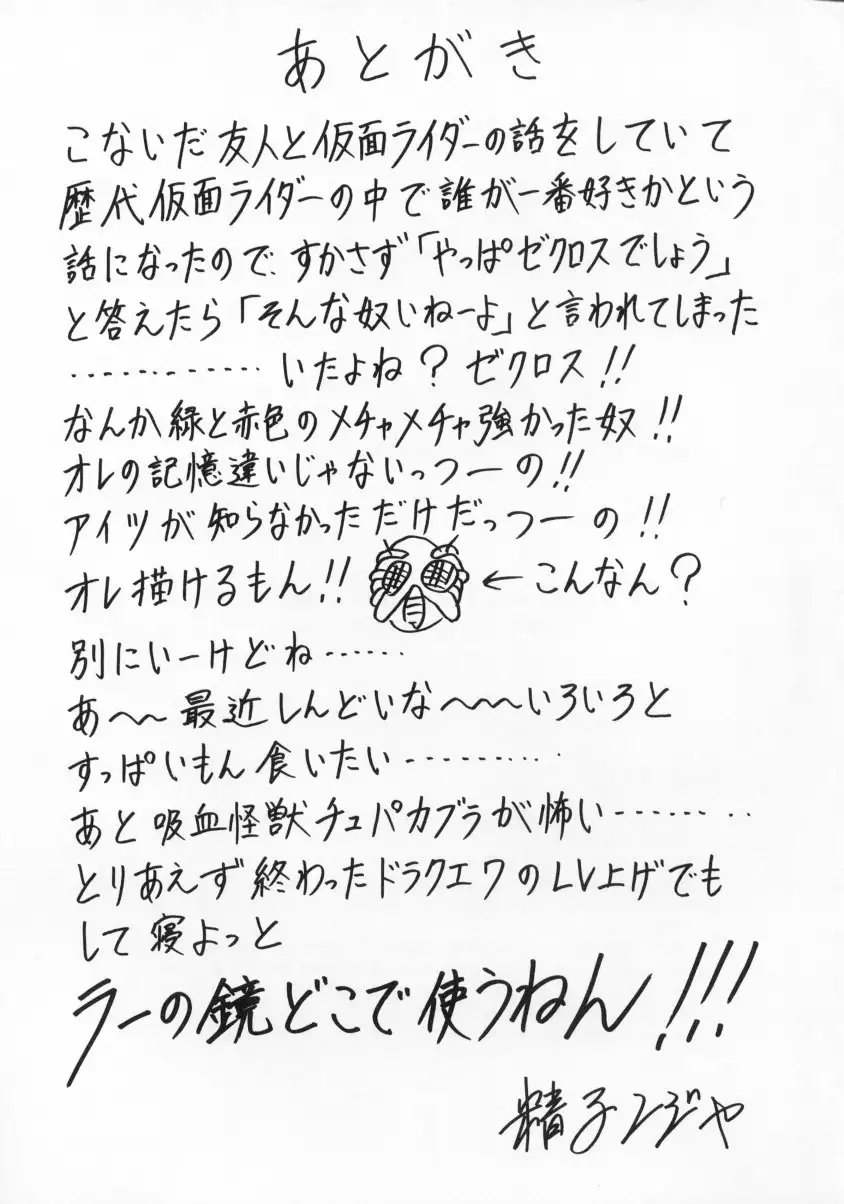 あとがき
こないだ友人と仮面ライダーの話をしていて
歴代仮面ライダーの中で誰が一番好きかという
話になったので、すかさず「やっぱゼクロスでしょう」
と答えたら「そんな奴いねーよ」と言われてしまった
……………… いたよね？ゼクロス!!
なんか緑と赤色のメチャメチャ強かった奴!!
オレの記憶違いじゃないっつーの!!
アイツが知らなかっただけだっつーの!!
オレ描けるもん!! ←こんなん？
別にいーけどね……
あ〜〜最近しんどいな〜〜〜いろいろと
すっぱいもん食いたい…………
あと吸血怪獣チュパカブラが怖い………
とりあえず終わったドラクエ7のLV上げでも
して寝よっと
ラーの鏡どこで使うねん!!!
精子ンジャ